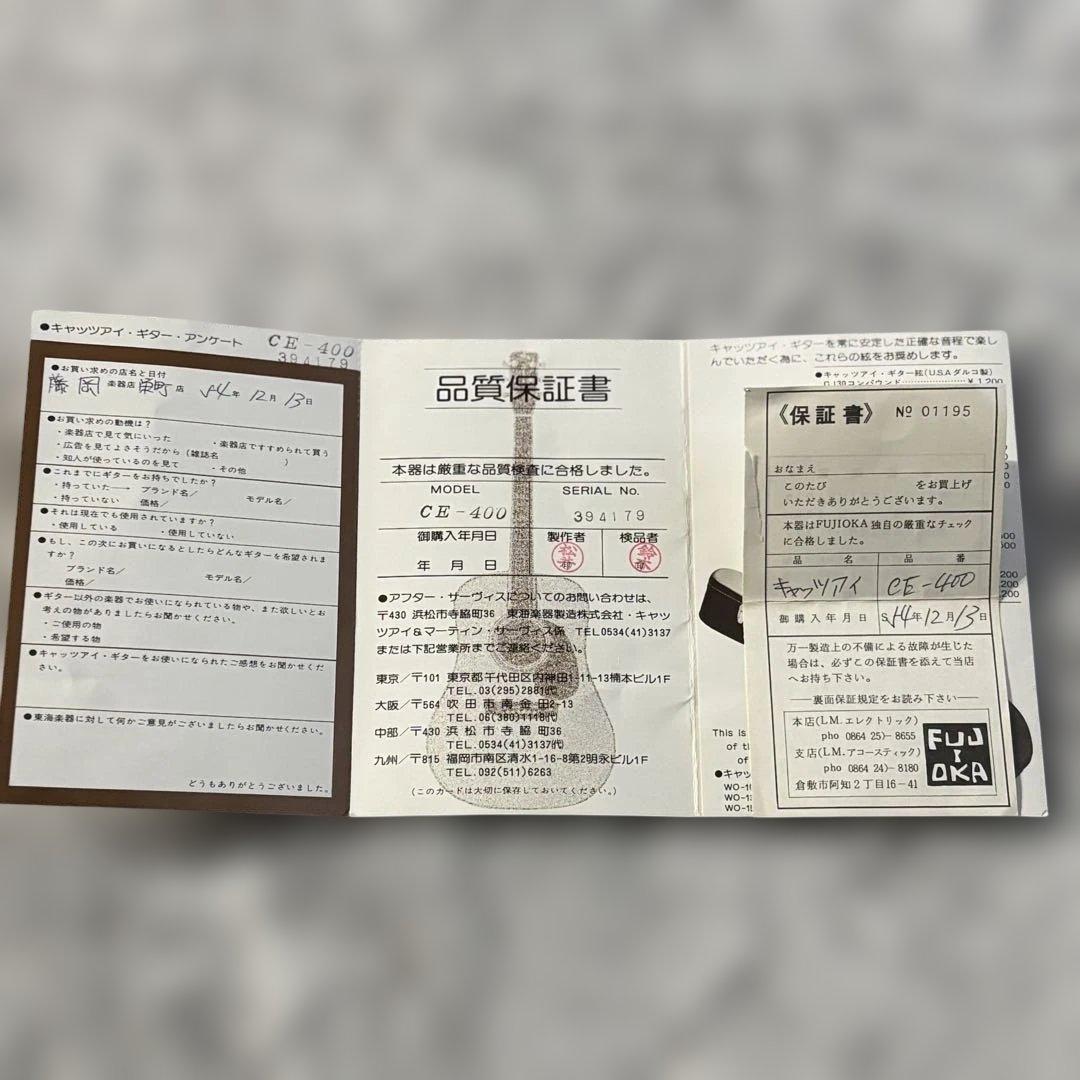 ●キャッツアイ・ギター・アンケート
CE-400
394179
●お買い求めの店名と日付
藤岡 楽器店 栄町 店 S4年 12月 13日
●お買い求めの動機は?
・楽器店で見て気にいった ・楽器店ですすめられて買う
・広告を見てよさそうだから (雑誌名 )
・知人が使っているのを見て ・その他
●これまでにギターをお持ちでしたか?
・持っていた→ ブランド名/ モデル名/
・持っていない 価格/
●それは現在でも使用されていますか?
・使用している ・使用していない
●もし、この次にお買いになるとしたらどんなギターを希望されま
すか?
ブランド名/ モデル名/
価格/
●ギター以外の楽器でお使いになられている物や、また欲しいとお
考えの物がありましたらお聞かせください。
・ご使用の物
・希望する物
●キャッツアイ・ギターをお使いになられたご感想をお聞かせくだ
さい。
●東海楽器に対して何かご意見がございましたらお聞かせください。
どうもありがとうございました。
品質保証書
本器は厳重な品質検査に合格しました。
MODEL SERIAL No.
CE-400 394179
御購入年月日 製作者 検品者
年 月 日 松本印 鈴木印
●アフター・サーヴィスについてのお問い合わせは、
〒430 浜松市寺脇町36 東海楽器製造株式会社・キャッ
ツアイ&マーティン・サーヴィス係 TEL0534(41)3137
または下記営業所までご連絡ください。
東京/〒101 東京都千代田区内神田1-11-13楠本ビル1F
TEL.03(295)2881代
大阪/〒564 吹田市南金田2-13
TEL.06(380)1118代
中部/〒430 浜松市寺脇町36
TEL.0534(41)3137代
九州/〒815 福岡市南区清水1-16-8第2明永ビル1F
TEL.092(511)6263
(このカードは大切に保存しておいてください。)
キャッツアイ・ギターを常に安定した正確な音程で楽し
んでいただく為に、これらの絃をお奨めします。
●キャッツアイ・ギター絃(USAダルコ製)
コンパウンド ¥1,200
《保証書》 № 01195
おなまえ
このたび をお買上げ
いただきありがとうございます。
本器はFUJIOKA独自の厳重なチェック
に合格しました。
品名 品番
キャッツアイ CE-400
御購入年月日 S54年12月13日
万一製造上の不備による故障が生じた
場合は、必ずこの保証書を添えて当店
へお持ち下さい。
裏面保証規定をお読み下さい
本店(LM.エレクトリック)
pho 0864 25)-8655
支店(LM.アコースティック)
pho 0864 24)-8180
倉敷市阿知2丁目16-41
FUJIOKA
This is
of th
of
●キャッ
WO-1
WO-1
WO-1
200
200